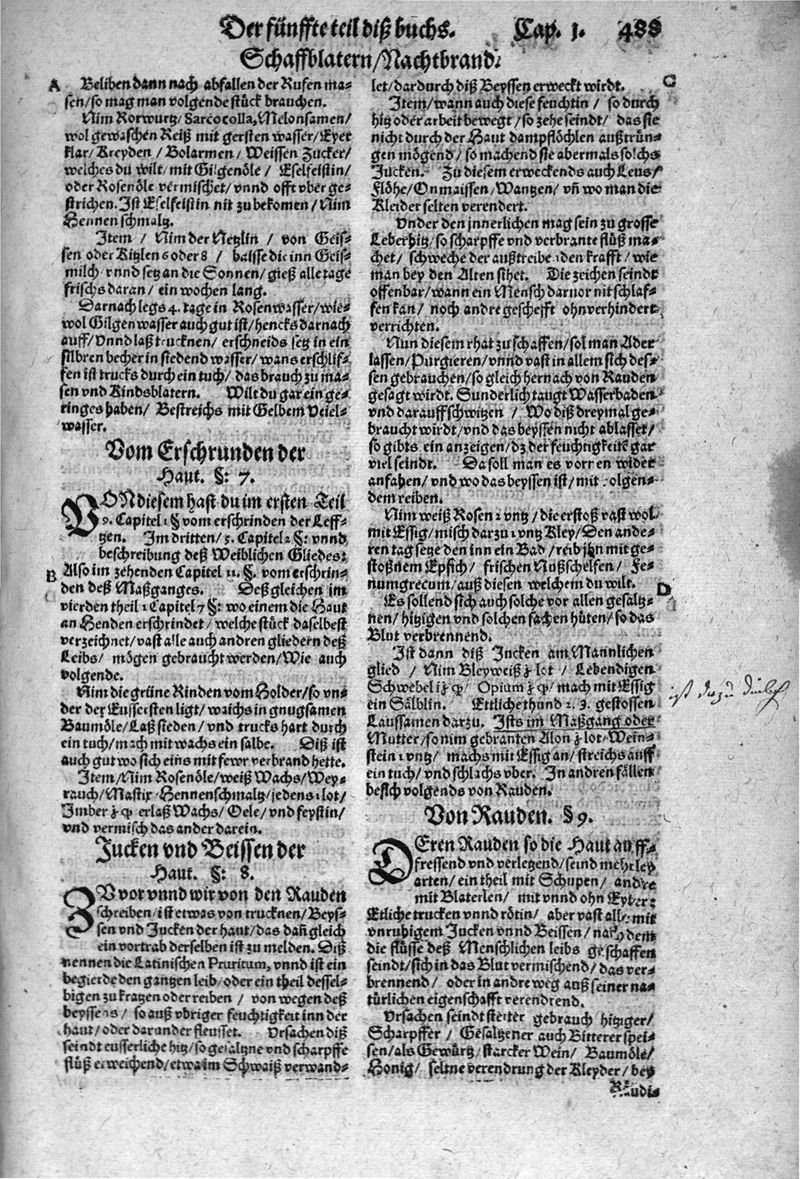 Der fünffte teil diß buchs. Cap. 1. 488
Schaffblatern/Nachtbrand.
A Beliben dann nach abfallen der Rufen ma-
sen/so mag man volgende stück brauchen.
Nim Rorwurtz/Sarcocolla, Melonsamen/
wol gewaschen Reiß mit gersten wasser/Eyer
klar/Kreyden/Bolarmen/Weissen Zucker/
welches du wilt/mit Gilgenöle/Eselfeistin/
oder Rosenöle vermischet/vnnd offt vber ge-
strichen. Ist Eselfeistin nit zu bekomen/Nim
Hennen schmaltz.
Item/Nim der Netzlin/von Geis-
sen oder Kitzlen 6 oder 8/baisse die inn Geis-
milch vnnd setz an die Sonnen/gieß alle tage
frischs daran/ein wochen lang.
Darnach legs 4. tage in Rosenwasser/wie-
wol Gilgenwasser auch gut ist/hencks darnach
auff/Vnnd laß trucknen/erschneids setz in ein
silbren becher in siedend wasser/wans erschlif-
fen ist trucks durch ein tuch/das brauch zu ma-
sen vnd Kindsblatern. Wilt du gar ein ge-
ringes haben/Bestreichs mit Gelbem Veiel-
wasser.
Vom Erschrunden der
Haut. §: 7.
VON diesem hast du im ersten Teil
9. Capitel 1 § vom erschrinden der Leff-
tzen. Im dritten/3. Capitel 2 §: vnnd
beschreibung deß Weiblichen Gliedes:
B Also im zehenden Capitel 11. §. vom erschrin-
den deß Maßganges. Deßgleichen im
vierden theil 1 Capitel 7 §: wo einem die Haut
an Henden erschrindet/welche stück daselbst
verzeichnet/vast alle auch andren gliedern deß
Leibs/mögen gebraucht werden/Wie auch
volgende.
Nim die grüne Rinden vom Holder/so vn-
der der Eussersten ligt/waichs in gnugsamen
Baumöle/Laß sieden/vnd trucks hart durch
ein tuch/mach mit wachs ein salbe. Diß ist
auch gut wo sich eins mit fewr verbrand hette.
Item/Nim Rosenöle/weiß Wachs/Wey-
rauch/Mastix/Hennenschmaltz/jedens 1 lot/
Imber erlaß Wachs/Oele/vnd feystin/
vnd vermisch das ander darein.
Jucken vnd Beissen der
Haut. §: 8.
ZVvor vnnd wir von den Rauden
schreiben/ist etwas von trucknen/Beys-
sen vnd Jucken der haut/das dañ gleich
ein vortrab derselben ist zu melden. Diß
nennen die Latinischen Pruritum, vnnd ist ein
begierde den gantzen leib/oder ein theil dessel-
bigen zu kratzen oder reiben/von wegen deß
beyssens/so auß vbriger feuchtigkeit inn der
haut/oder darunder fleusset. Vrsachen diß
seindt eusserliche hitz/so gesaltzne vnd scharpffe
flüß erweichend/etwa im Schwaiß verwand-
let/dardurch diß Beyssen erweckt wirdt. C
Item/wann auch diese feuchtin/so durch
hitz oder arbeit bewegt/so zehe seindt/das sie
nicht durch der Haut dampflöchlen außtrün-
gen mögend/so machend sie abermals solchs
Jucken. Zu diesem erweckends auch Leus/
Flöhe/Onmaissen/Wantzen/vñ wo man die
Kleider selten verendert.
Vnder den jnnerlichen mag sein zu grosse
Leberhitz/so scharpffe vnd verbrante flüß ma-
chet/schweche der außtreibenden krafft/wie
man bey den Alten sihet. Die zeichen seindt
offenbar/wann ein Mensch darvor nit schlaf-
fen kan/noch andre geschefft ohnverhindert
verrichten.
Nun diesem rhat zu schaffen/sol man Ader
lassen/Purgieren/vnnd vast in allem sich des-
sen gebrauchen/so gleich hernach von Rauden
gesagt wirdt. Sunderlich taugt Wasserbaden
vnd darauff schwitzen/Wo diß dreymal ge-
braucht wirdt/vnd das beyssen nicht ablasset/
so gibts ein anzeigen/dz der feuchtigkeit gar
viel seindt. Da soll man es vorren wider
anfahen/vnd wo das beyssen ist/mit volgen-
dem reiben.
Nim weiß Rosen 2 vntz/die erstoß vast wol
mit Essig/misch darzu 1 vntz Kley/Den ande-
ren tag setze den inn ein Bad/reib jhn mit ge-
stoßnem Epfich/frischen Nußschelfen/Fe-
numgrecum/auß diesen welchem du wilt. D
Es sollend sich auch solche vor allen gesaltz-
nen/hitzigen vnd solchen sachen hüten/so das
Blut verbrennend.
Ist dann diß Jucken am Mannlichen
glied/Nim Bleyweiß lot/Lebendigen
Schwebel Opium mach mit Essig
ein Sälblin. Ettliche thund 2. 3. gestossen
Laussamen darzu. Ists im Maßgang oder
Mutter/so nim gebranten Alon lot/Wein-
stein 1 vntz/machs mit Essig an/streichs auff
ein tuch/vnd schlachs vber. In andren fällen
besich volgends von Rauden.
Von Rauden. § 9.
DEren Rauden so die Haut auff-
fressend vnd verletzend/seind mehrley
arten/ein theil mit Schupen/andre
mit Blaterlen/mit vnnd ohn Eyter:
Etliche trucken vnnd rötin/aber vast alle mit
vnruhigem Jucken vnnd Beissen/nach dem
die flüsse deß Menschlichen leibs geschaffen
seindt/sich in das Blut vermischend/das ver-
brennend/oder in andre weg auß seiner na-
türlichen eigenschafft verendrend.
Vrsachen seindt steter gebrauch hitziger/
Scharpffer/Gesaltzener auch Bitterer spei-
sen/als Gewürtz/starcker Wein/Baumöle/
Honig/seltne verendrung der Kleyder/bey
Raudi-